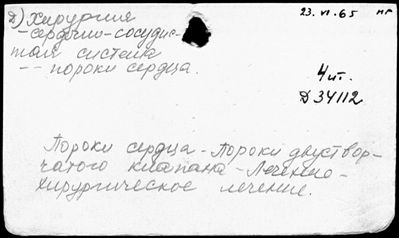 2) Хирургия
23.VI.65 нг
-сердечно-сосудис-
тая система
-- пороки сердца.
4 шт.
Д 34112
Пороки сердца - Пороки двуствор-
чатого клапана - Лечение -
хирургическое лечение.